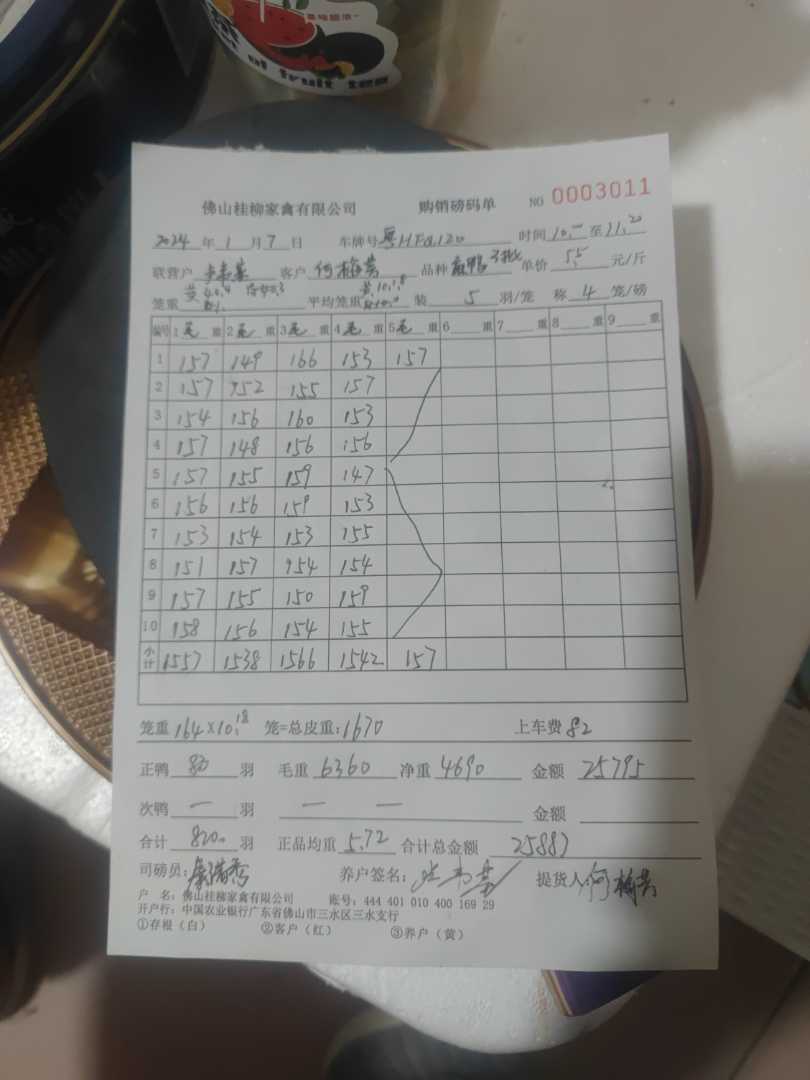 佛山桂柳家禽有限公司 购销磅码单 NO 0003011
2024 年 1 月 7 日 车牌号 粤HFQ120 时间 10 至 11.20
联营户 客户 何梅芳 品种 麻鸭 单价 5.5 元/斤
笼重 平均笼重 装 5 羽/笼 称 4 笼/磅
编号 1 毛 重 2 毛 重 3 毛 重 4 毛 重 5 毛 重 6 重 7 重 8 重 9 重
1 157 149 166 153 157
2 157 152 155 157
3 154 156 160 153
4 157 148 156 156
5 157 155 159 147
6 156 156 159 153
7 153 154 153 155
8 151 157 154 154
9 157 155 150 159
10 158 156 154 155
小计 1557 1538 1566 1542 157
笼重 164×10.18 笼=总皮重:1670 上车费 82
正鸭 820 羽 毛重 6360 净重 4690 金额 25795
次鸭 — 羽 — — 金额
合计 820 羽 正品均重 5.72 合计总金额 25887
司磅员: 养户签名: 提货人 何梅芳
户 名:佛山桂柳家禽有限公司 账号:444 401 010 400 169 29
开户行:中国农业银行广东省佛山市三水区三水支行
①存根(白) ②客户(红) ③养户(黄)